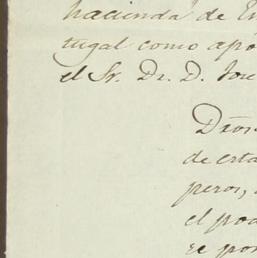 hacienda de
tugal como apo
el Sr. Dr. D. Jose
Dios
de esta
peros,
el pod
se pon